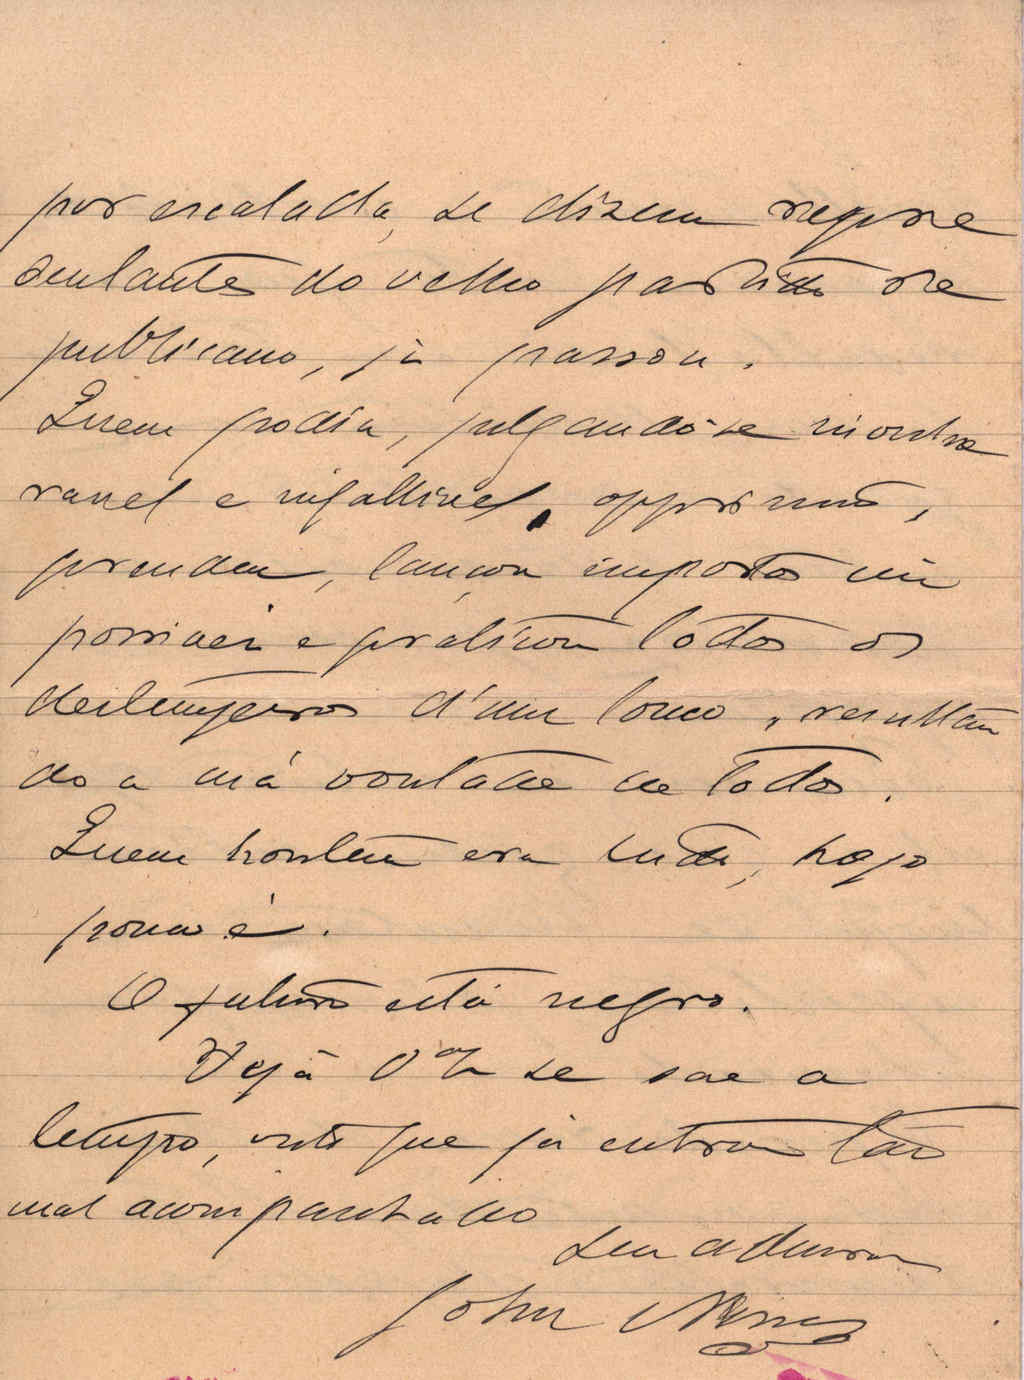 por escalada, se dizem repre
sentantes do velho partido re
publicano, já passou.
Quem podia, julgando-se incontra
ravel e infallivel, opprimio,
prendeu, lançou impostos im
possiveis e praticou todos os
destemperos d'um louco, resultan
do a má vontade de todos.
Quem hontem era tudo, hoje
pouco é.
O futuro está negro.
Veja se sae a
tempo, visto que já entrou tão
mal acompanhado
Seu admirador
John